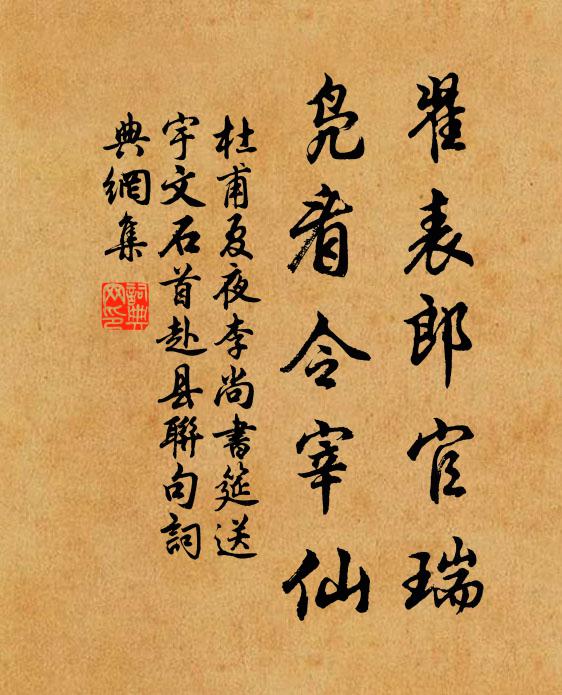 翟表郎官瑞
凫看令宰仙
杜甫夏夜李尚書筵送
宇文石首赴县聯句詞
典網集
詞典网印